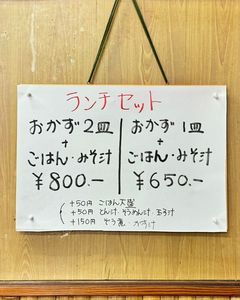 ランチセット
おかず2皿
+
ごはん・みそ汁
¥800.-
おかず1皿
+
ごはん・みそ汁
¥650.-
+50円 ごはん大盛
+50円 とん汁・そうめん汁・玉子汁
+150円